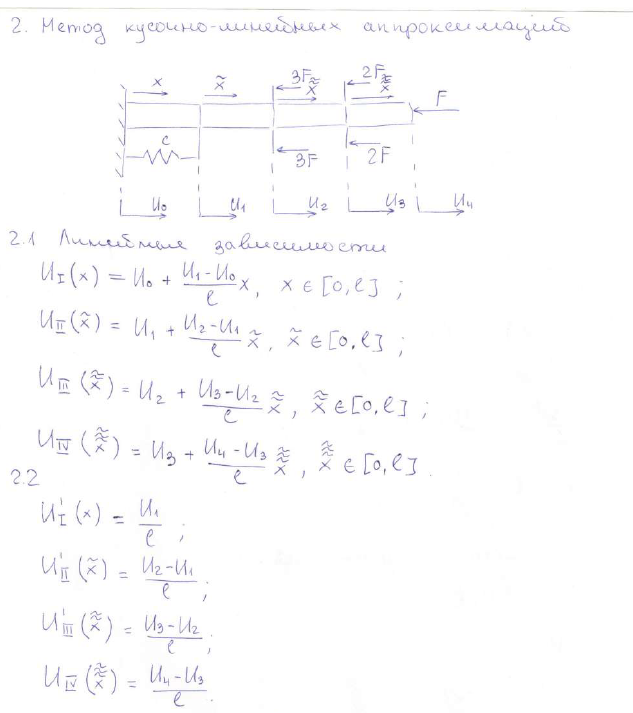 2. Метод кусочно-линейных аппроксимаций
x x̃ 3F x̃̃ 2F x̃̃̃ F
c 3F 2F
U₀ U₁ U₂ U₃ U₄
2.1 Линейные зависимости
U_I(x) = U₀ + (U₁-U₀)/ℓ x, x ∈ [0,ℓ] ;
U_II(x̃) = U₁ + (U₂-U₁)/ℓ x̃, x̃ ∈ [0,ℓ] ;
U_III(x̃̃) = U₂ + (U₃-U₂)/ℓ x̃̃, x̃̃ ∈ [0,ℓ] ;
U_IV(x̃̃̃) = U₃ + (U₄-U₃)/ℓ x̃̃̃, x̃̃̃ ∈ [0,ℓ].
2.2
U'_I(x) = U₁/ℓ ;
U'_II(x̃) = (U₂-U₁)/ℓ ;
U'_III(x̃̃) = (U₃-U₂)/ℓ ;
U_IV(x̃̃̃) = (U₄-U₃)/ℓ.